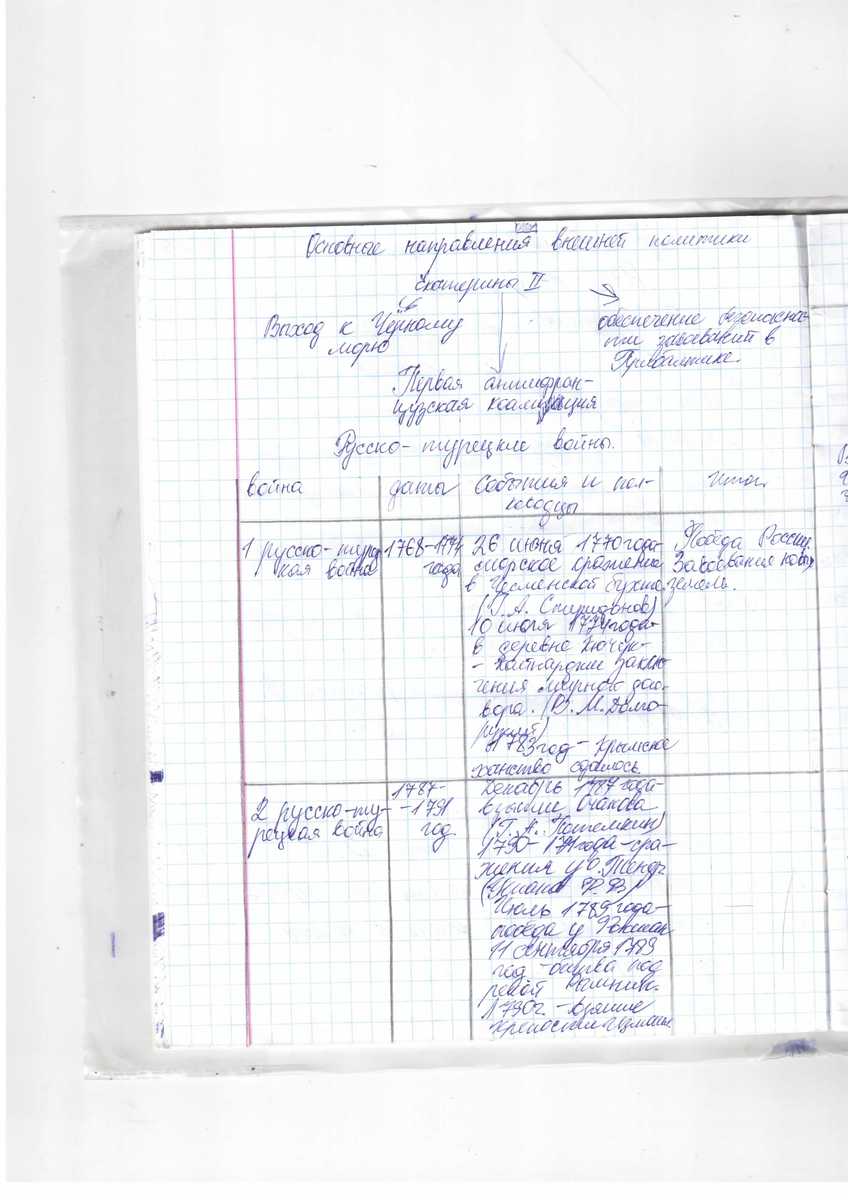 Основные направления внешней политики
Екатерины II
Выход к Чёрному
морю
обеспечение безопасно-
ти завоеваний в
Прибалтике.
Первая антифран-
цузская коалиция
Русско-турецкие войны.
война
даты
События и пол-
ководцы
Итог
1 русско-турец
кая война
1768-1774
года
26 июня 1770 года-
морское сражение
в Чесменской бухте.
(Г.А. Спиридонов)
10 июля 1774 года-
в деревне Кючук-
-Кайнарджи заклю-
чения мирного дого-
вора. (В.М.Долго-
рукий)
1783 год - Крымское
ханство сдалось.
Победа России
Завоевания новых
земель.
2 русско-ту-
рецкая война
1787-
-1791
год.
Декабрь 1787 года-
взятие Очакова
(Г.А. Потемкин)
1790-1791 года-сра-
жения у о.Тендр
(Ушаков Ф.Ф)
Июль 1789 года-
победа у Фокшан
11 сентября 1789
год -битва под
рекой Рымник.
1790г. -взятие
крепости Измаил